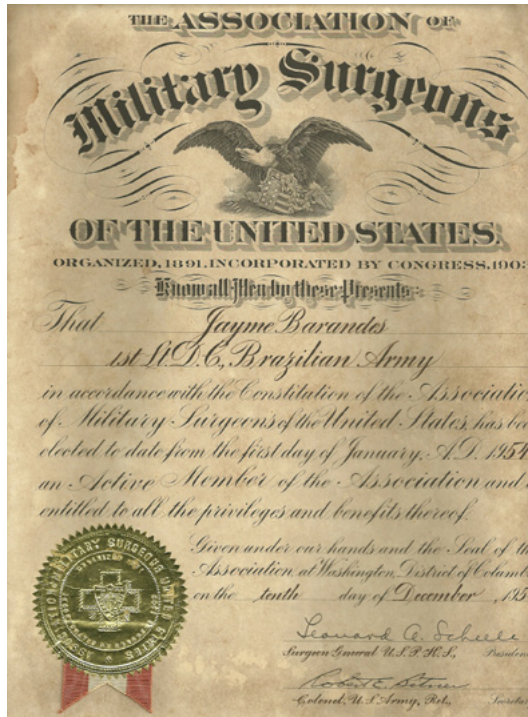 THE ASSOCIATION OF
Military Surgeons
OF THE UNITED STATES.
ORGANIZED, 1891, INCORPORATED BY CONGRESS, 190
Know all Men by these Presents
That Jayme Barandes
1st Lt. D.C, Brazilian Army
in accordance with the Constitution of the Associatio
of Military Surgeons of the United States, has bee
elected to date from the first day of January, A.D. 1954
an Active Member of the Association and
entitled to all the privileges and benefits thereof.
Given under our hands and the Seal of th
Association at Washington, District of Columb
on the tenth day of December , 195
Leonard A. Scheele
Surgeon General U.S.P.H.S., Presiden
Robert E. Bitner
Colonel, U.S. Army, Ret., Secreta
ASSOCIATION MILITARY SURGEONS UNITED STATES